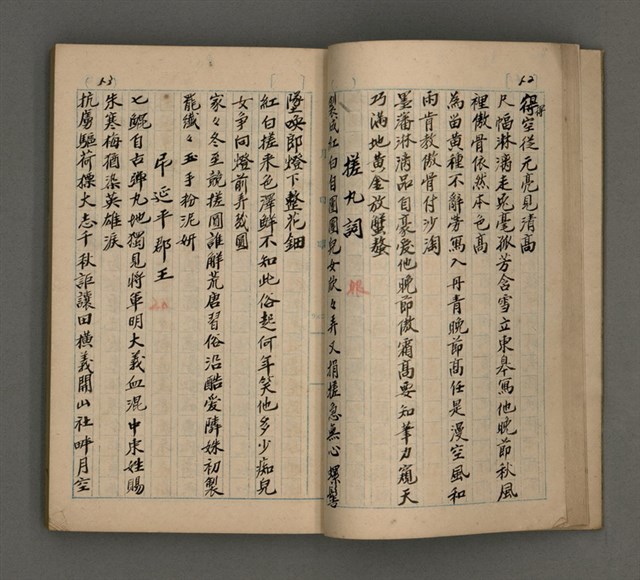 52
得空從元亮見清高
尺幅淋漓走兔毫孤芳含雪立東皋寫他晚節秋風
裡傲骨依然本色高
為留黃種不辭勞寫入丹青晚節高任是漫空風和
雨肯教傲骨付沙淘
墨潘淋漓品自豪愛他晚節傲霜高要知筆力窺天
巧滿地黃金放蟹螯
搓丸詞
製成紅白自團圓兒女欣々弄又捐搓急無心螺髻
53
墜喚郎燈下整花鈿
紅白搓來色澤鮮不知此俗起何年笑他多少痴兒
女爭向燈前弄幾圓
家々冬至競搓圓誰解荒唐習俗沿酷愛隣姝初製
罷纖々玉手粉泥妍
弔延平郡王
七鯤自古肆丸地獨見將軍明大義血混中東姓賜
朱寒梅猶染英雄淚
抗虜驅荷捰大志千秋詎讓田橫義開山社畔月空